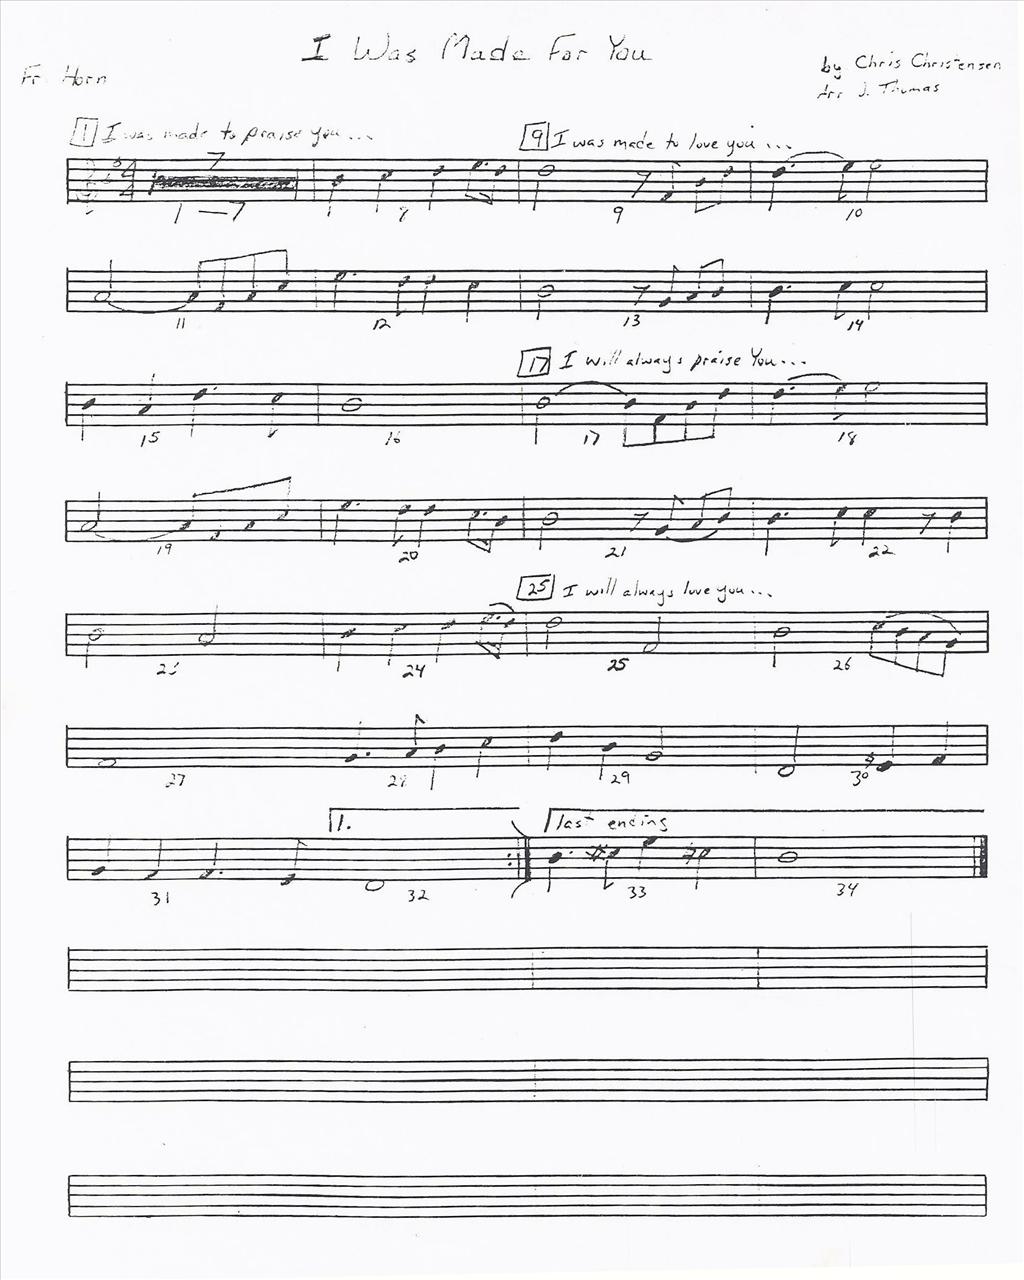 I Was Made For You
Fr. Horn
by Chris Christensen
Arr J. Thomas
1 I was made to praise you...
9 I was made to love you...
7
1—7 8 9 10
11 12 13 14
17 I will always praise You...
15 16 17 18
19 20 21 22
25 I will always love you...
23 24 25 26
27 28 29 30
1. last ending
31 32 33 34